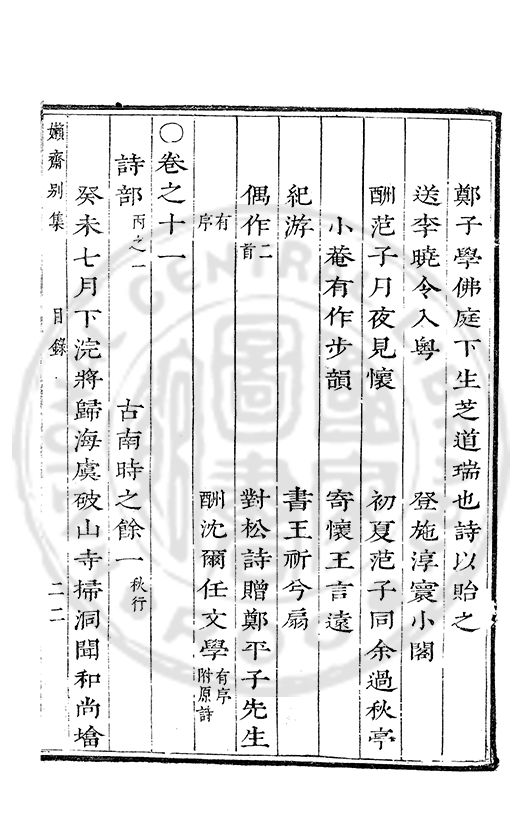 鄭子學佛庭下生芝道瑞也詩以貽之
送李曉令入粵　登施淳寰小閣
酬范子月夜見懷　初夏范子同余過秋亭
小菴有作步韻　寄懷王言遠
紀游　書王祈兮扇
偶作二首　對松詩贈鄭平子先生
有序　酬沈爾任文學有序附原詩
○卷之十一
詩部丙之一　古南時之餘一秋行
癸未七月下浣將歸海虞破山寺掃洞聞和尚墖
嬾齋別集　目錄　二二